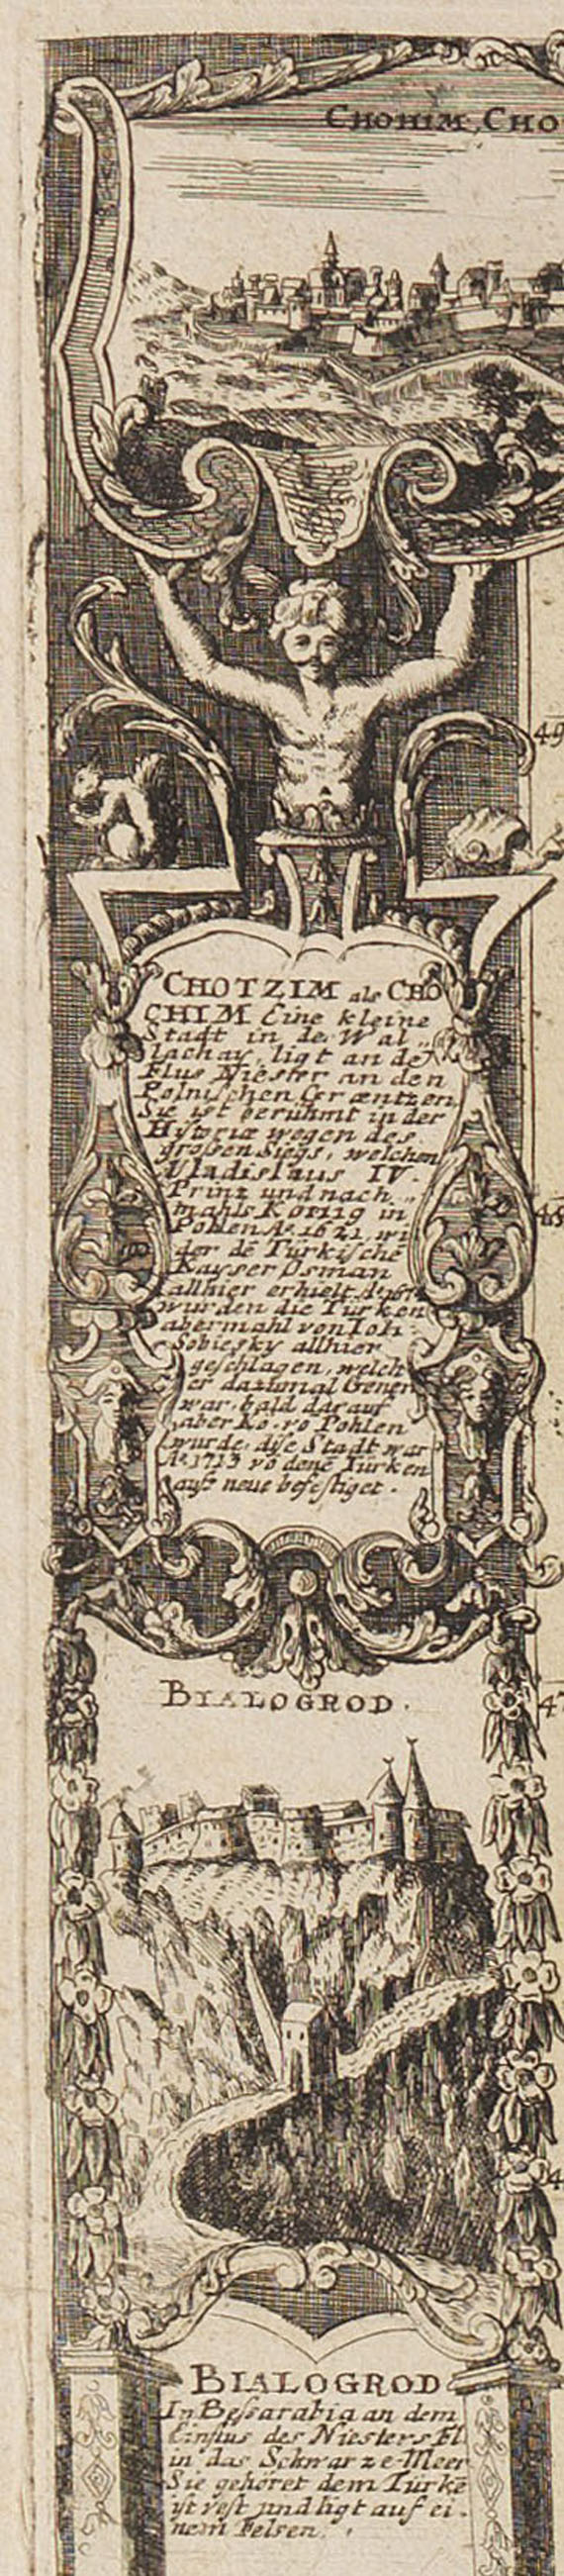 CHOHIM, CHO
49
CHOTZIM als CHO
CHIM Eine kleine
Stadt in der Wal„
lachay, ligt an dem
Flus Niester an den
Polnischen Græntzen.
Sie ist berühmt in der
Historiæ wegen des
grossen Siegs, welchen
Vladislaus IV.
Prinz und nach„
mahls König in
Pohlen Aº. 1621. wi
der dē Türkischē
Kayser Osman
allhier erhielt. Aº.
wurden die Türken
abermahl von Ioh:
Sobiesky allhier
geschlagen, welch
er dazumal Gener
war, bald darauf
aber Kö. vō Pohlen
wurde, dise Stadt war
Aº. 1713 vō denē Türken
aufs neue befestiget.
48
BIALOGROD.
47
BIALOGROD
In Bessarabia an dem
Einflus des Niesters Fl.
in das Schwarze-Meer
Sie gehöret dem Türkē
ist vest und ligt auf ei„
nem Felsen.